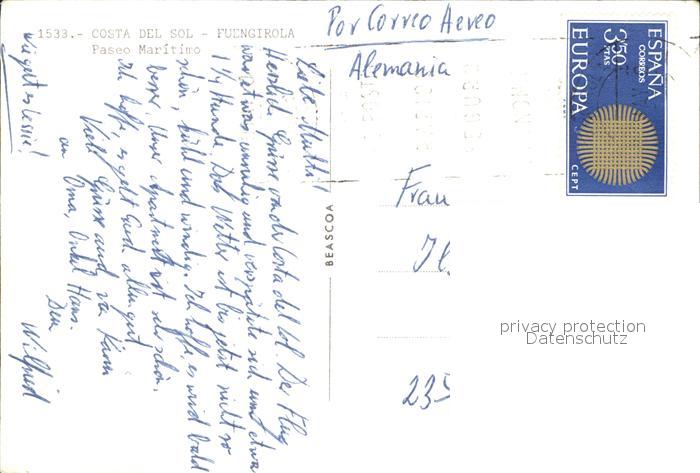 1533.- COSTA DEL SOL - FUENGIROLA
Paseo Marítimo
Por Correo Aereo
Alemania
ESPAÑA
CORREOS
3'50
PTAS
EUROPA
CEPT
Liebe Mutti!
Herzliche Grüsse von der Costa del Sol. Der Flug
war etwas unruhig und verspätete sich um etwa
1 1/4 Stunde. Das Wetter ist bis jetzt nicht so
schön, kühl und windig. Ich hoffe, es wird bald
besser. Unser Apartment ist sehr schön.
Ich hoffe, es geht Euch allen gut.
Viele Grüsse auch von Karin
an Oma, Onkel Hans.
Dein
Wilfried
Wie geht es
BEASCOA
Frau
235
privacy protection
Datenschutz